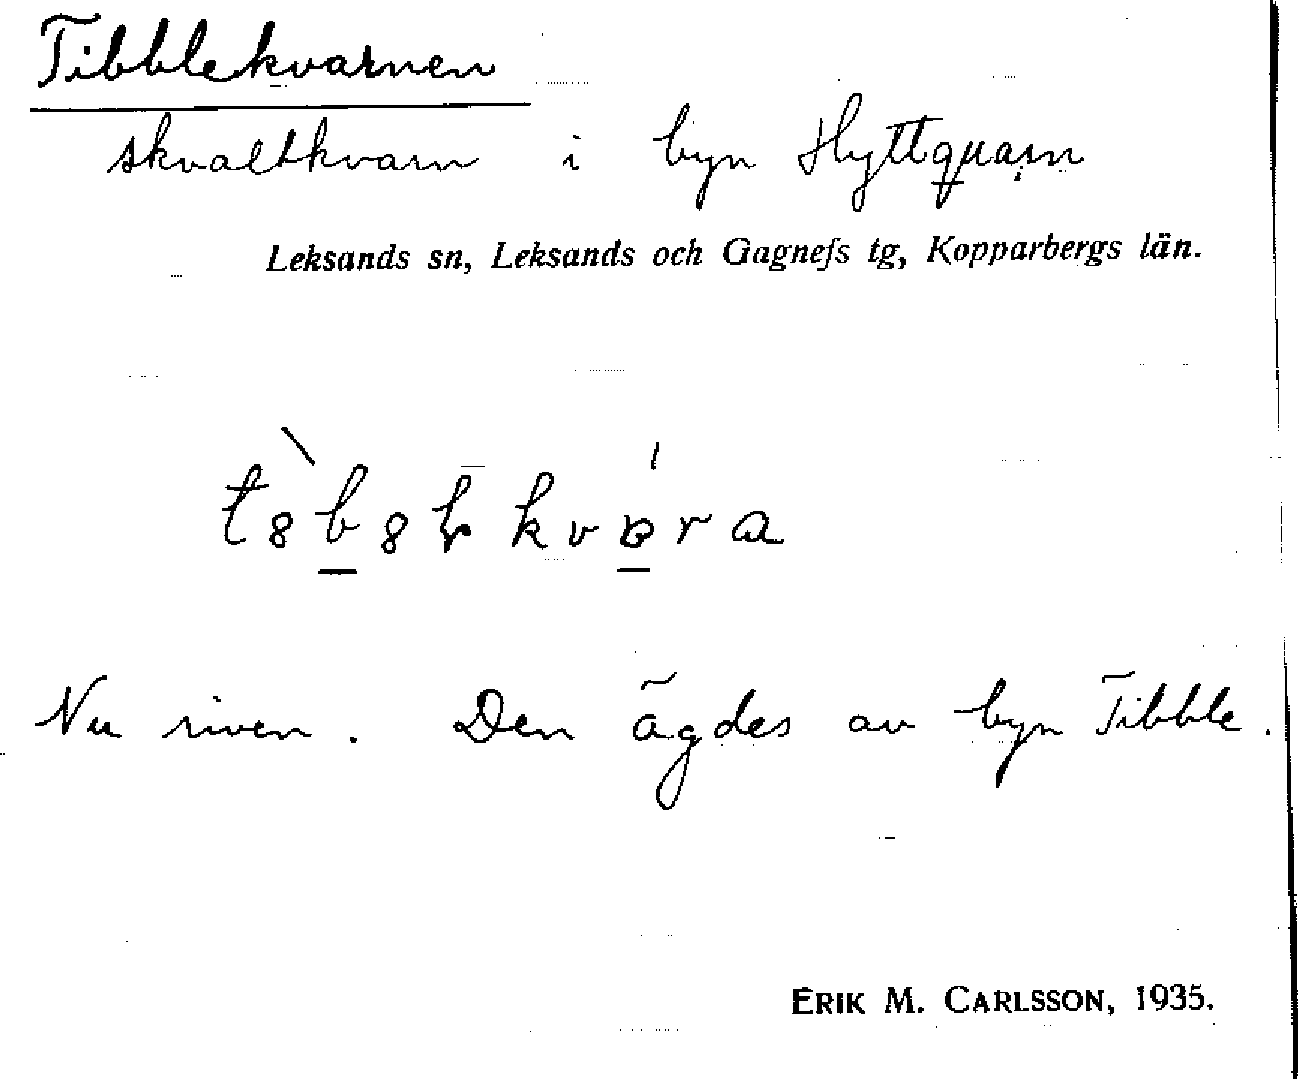 Tibblekvarnen
skvaltkvarn i byn Hyttquarn
Leksands sn, Leksands och Gagnefs tg, Kopparbergs län.
Nu riven. Den ägdes av byn Tibble.
ERIK M. CARLSSON, 1935.